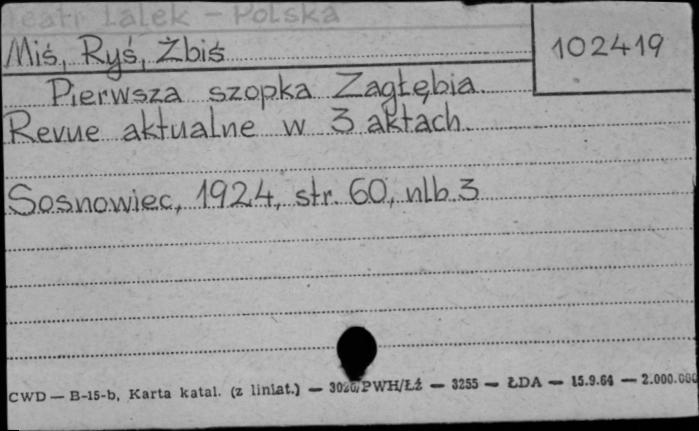 Teatr Lalek - Polska
Miś, Ryś, Żbiś
102419
Pierwsza szopka Zagłębia.
Revue aktualne w 3 aktach.
Sosnowiec, 1924, str. 60, nlb. 3
CWD — B-15-b, Karta katal. (z liniat.) — 3020/PWH/Łź — 3255 — ŁDA — 15.9.64 — 2.000.000